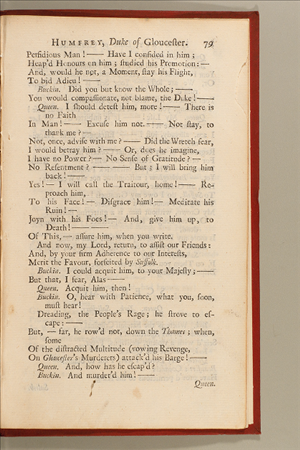 HUMFREY, Duke of Gloucester. 79
Perfidious Man! —— Have I confided in him;
Heap'd Honours on him; studied his Promotion: —
And, would he not, a Moment, stay his Flight,
To bid Adieu! ——
Buckin. Did you but know the Whole; ——
You would compassionate, not blame, the Duke! ——
Queen. I should detest him, more! —— There is
no Faith
In Man! —— Excuse him not. —— Not stay, to
thank me? —
Not, once, advise with me? —— Did the Wretch fear,
I would betray him? —— Or, does he imagine,
I have no Power? — No Sense of Gratitude? —
No Resentment? —— —— But; I will bring him
back! ——
Yes! — I will call the Traitour, home! —— Re-
proach him,
To his Face! — Disgrace him! — Meditate his
Ruin! —
Joyn with his Foes! — And, give him up, to
Death! ——
Of This, — assure him, when you write.
And now, my Lord, return, to assist our Friends:
And, by your firm Adherence to our Interests,
Merit the Favour, forfeited by Suffolk.
Buckin. I could acquit him, to your Majesty; ——
But that, I fear, Alas ——
Queen. Acquit him, then!
Buckin. O, hear with Patience, what you, soon,
must hear!
Dreading, the People's Rage; he strove to es-
cape: ——
But, — far, he row'd not, down the Thames; when,
some
Of the distracted Multitude (vowing Revenge,
On Gloucester's Murderers) attack'd his Barge! ——
Queen. And, how has he escap'd?
Buckin. And murder'd him! ——
Queen.